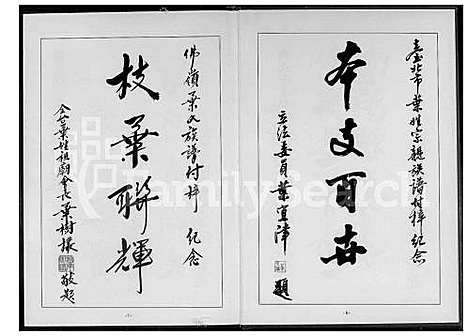 臺北市葉姓宗親族譜付梓紀念
本支百世
立法委員葉宜津
題
佛嶺葉氏族譜付梓 紀念
枝葉聯輝
全世葉姓祖廟會長葉樹
敬題
FamilySearch